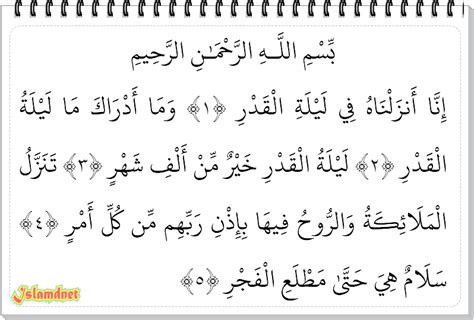 بِّسْمِ اللَّـهِ الرَّحْمَـٰنِ الرَّحِيمِ
إِنَّا أَنزَلْنَاهُ فِي لَيْلَةِ الْقَدْرِ ﴿١﴾ وَمَا أَدْرَاكَ مَا لَيْلَةُ
الْقَدْرِ ﴿٢﴾ لَيْلَةُ الْقَدْرِ خَيْرٌ مِّنْ أَلْفِ شَهْرٍ ﴿٣﴾ تَنَزَّلُ
الْمَلَائِكَةُ وَالرُّوحُ فِيهَا بِإِذْنِ رَبِّهِم مِّن كُلِّ أَمْرٍ ﴿٤﴾
سَلَامٌ هِيَ حَتَّىٰ مَطْلَعِ الْفَجْرِ ﴿٥﴾
Islamdnet